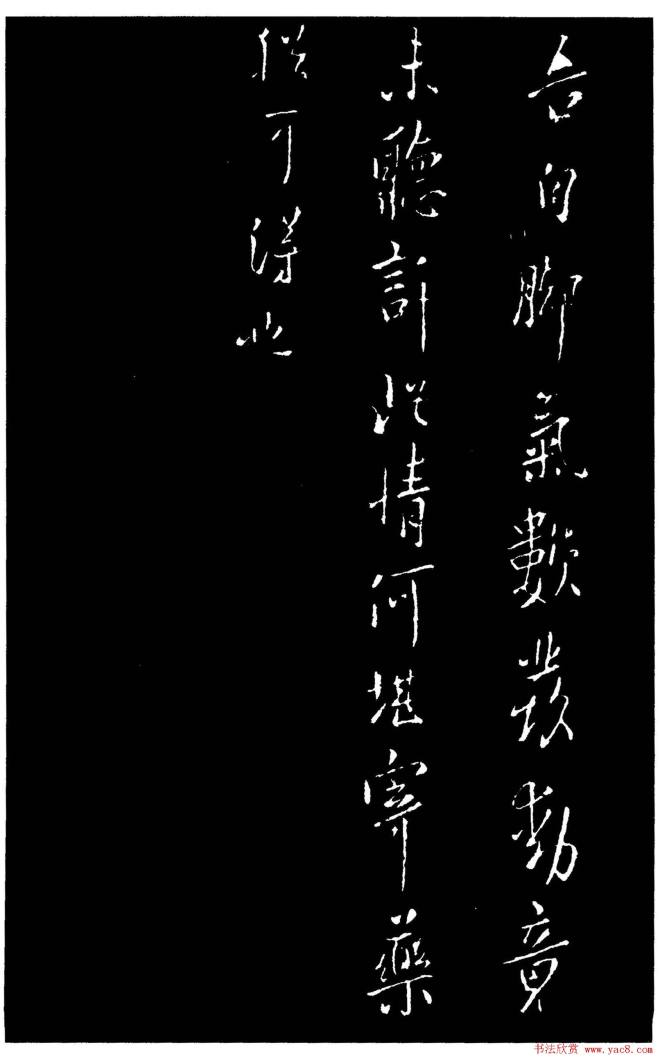 吾自脚氣數發動竟
未聽許此情何堪寄藥
猶可得也
书法欣赏 www.yac8.com